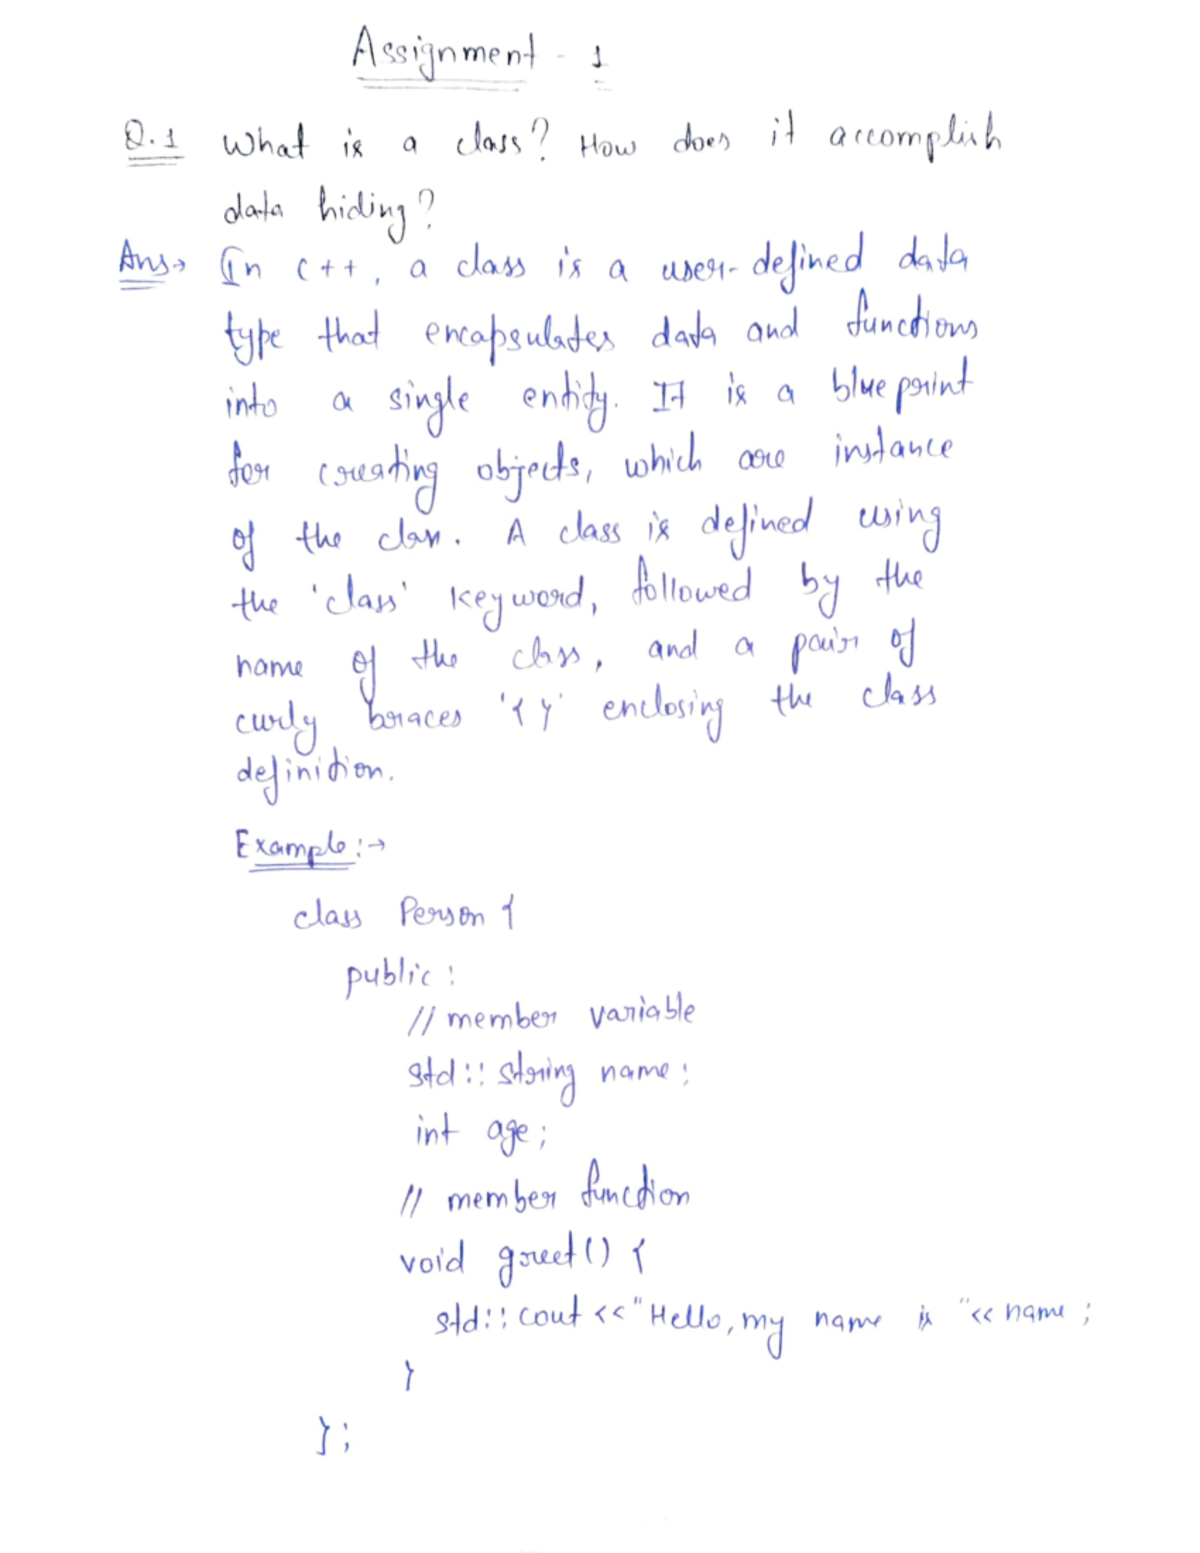 Assignment - 1
Q.1 What is a class? How does it accomplish
data hiding?
Ans→ In C++, a class is a user-defined data
type that encapsulates data and functions
into a single entity. It is a blue print
for creating objects, which are instance
of the class. A class is defined using
the 'class' keyword, followed by the
name of the class, and a pair of
curly braces '{ }' enclosing the class
definition.
Example:→
class Person {
public :
// member variable
std:: string name;
int age;
// member function
void greet() {
std:: cout << "Hello, my name is "<< name ;
}
};